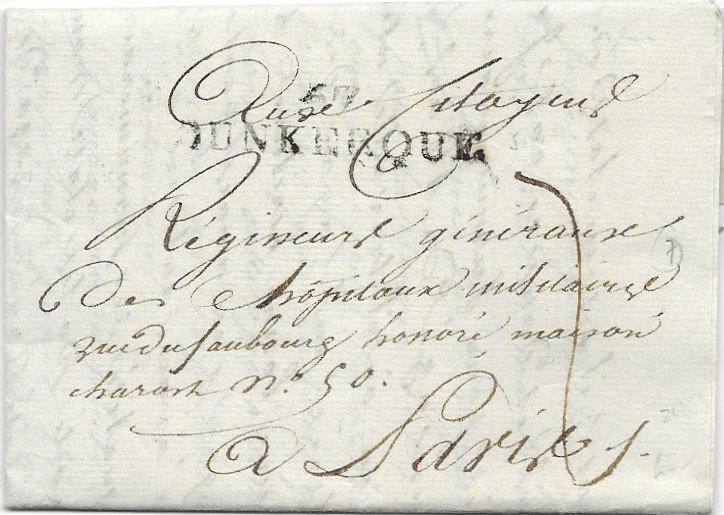 Aux Citoyens
57
DUNKERQUE
Régisseurs généraux
Des hôpitaux militaires
rue du faubourg honoré maison
charost N.º 50.
a Paris
7